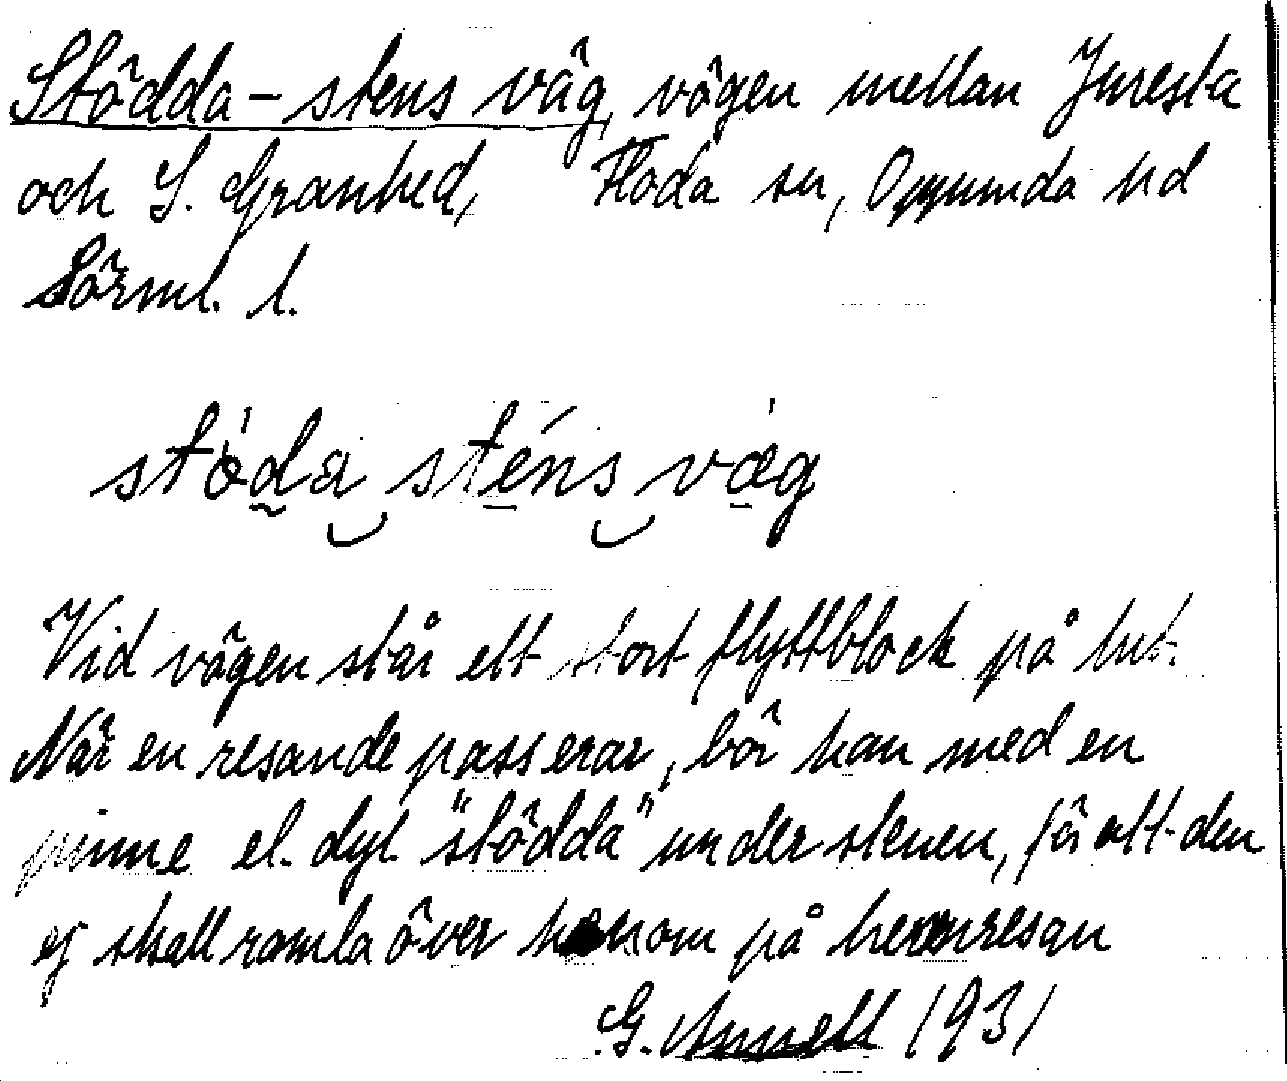 Stödda-stens väg, vägen mellan Juresta
och S. Granhed, Floda sn, Oppunda hd
Sörml. l.
stöda sténs väg
Vid vägen står ett stort flyttblock på lut.
När en resande passerar, bör han med en
pinne el. dyl. "stödda" under stenen, för att den
ej skall ramla över honom på hemresan
G. Annell 1931